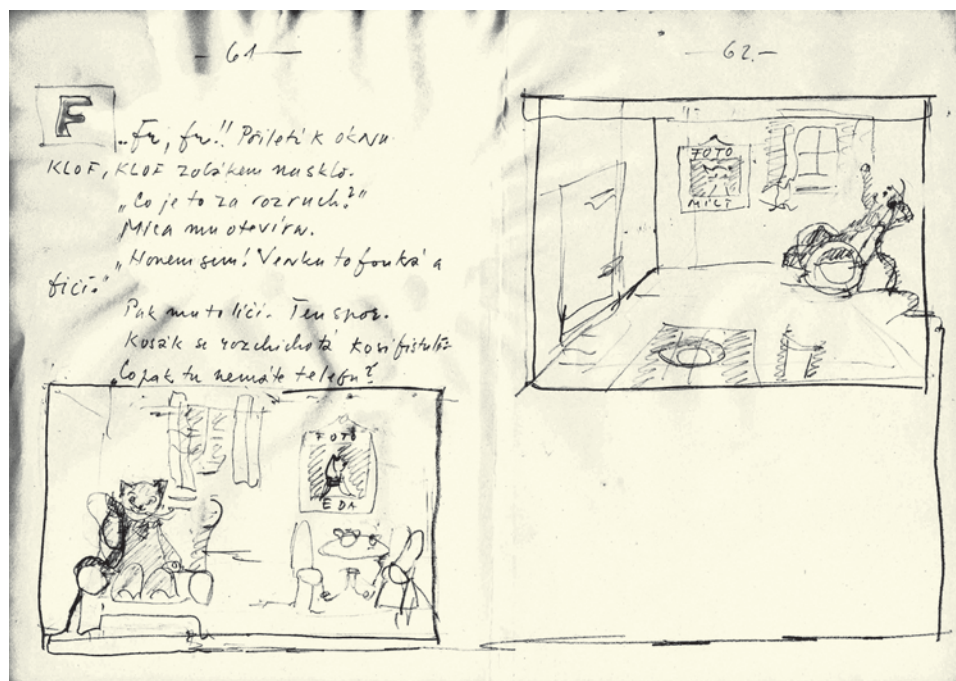 - 61 -
F
„Fr, fr!! Přiletí k oknu
KLOF, KLOF zobákem na sklo.
„Co je to za rozruch?“
Mica mu otevírá.
„Honem sem! Venku to fouká a
fičí.“
Pak mu to líčí. Ten spor.
Kosák se rozchichotá kosí fistulí:
„Copak tu nemáte telefn?
FOTO
EDA
- 62. -
FOTO